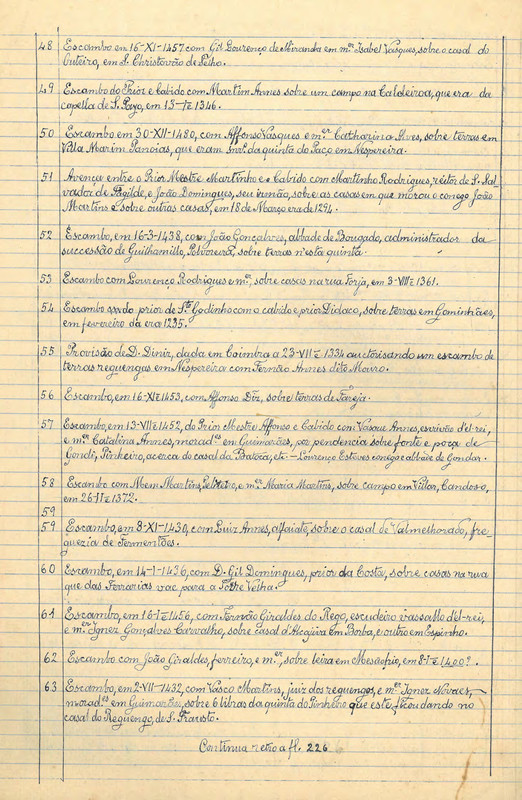 48 Escambo em 16-XI-1457 com Gil Lourenço de Miranda em mer Isabel Vasques, sobre o casal do
Outeiro, em S. Christovão de Selho.
49 Escambo do Prior e Cabido com Martim Annes sobre um campo na Caldeiroa, que era da
capella de S. Payo, em 13-I-E 1346.
50 Escambo em 30-XII-1480, com Affonso Vasques e mer Catharina Alves, sobre terras em
Villa Marim Panoias, que eram da quinta do Paço em Nespereira.
51 Avença entre o Prior Mestre Martinho e Cabido com Martinho Rodrigues, reitor de S. Sal-
vador de Pagilde, e João Domingues, seu irmão, sobre as casas em que morou o conego João
Martins e sobre outras casas, em 18 de Março era de 1294.
52 Escambo, em 16-3-1438, com João Gonçalves, abbade de Bougado, administrador da
successão de Guilhamillo, Polvoreira, sobre terras n'esta quinta.
53 Escambo com Lourenço Rodrigues e mer, sobre casas na rua Forja, em 3-VIII-E 1361.
54 Escambo do prior de Sto Godinho com o cabido e prior Didaco, sobre terras em Gominhães,
em fevereiro da era 1235.
55 Provisão de D. Diniz, dada em Coimbra a 23-VII-E 1334 auctorisando um escambo de
terras reguengas em Nespereira com Fernão Annes dito Mouro.
56 Escambo, em 16-XI-E 1453, com Affonso Diz, sobre terras de Fareja.
57 Escambo, em 13-VII-E 1452, do Prior Mestre Affonso e Cabido com Vasque Annes, escrivão d'el-rei,
e mer Catalina Annes, moradres em Guimarães, por pendencia sobre fonte e poça de
Gondi, Pinheiro, acerca do casal da etc. - Lourenço Esteves conego e abbade de Gondar.
58 Escambo com Mem Martins, e mer Maria Martins, sobre campo em Villar, Candoso,
em 26-II-E 1372.
59
59 Escambo, em 8-XI-1430, com Luiz Annes, alfaiate, sobre o casal de Valmelhorado, fre-
guezia de Fermentões.
60 Escambo, em 14-1-1436, com D. Gil Domingues, prior da Costa, sobre casas na rua
que das Ferrarias vae para a Torre Velha.
61 Escambo, em 16-I-E 1456, com Fernão Giraldes do Rego, escudeiro vassallo d'el-rei,
e mer Ignez Gonçalves Carvalho, sobre casal d'Alcajiva em Borba, e outro em Espinho.
62 Escambo com João Giraldes, ferreiro, e mer, sobre leira em Mesãofrio, em 8-I-E 1400?.
63 Escambo, em 2-VII-1432, com Vasco Martins, juiz dos reguengos, e mer Ignez Novaes,
moradres em Guimarães, sobre 6 libras da quinta do Pinheiro que este, ficou dando no
casal do Reguengo, de S. Fausto.
Continua retro a fl. 226